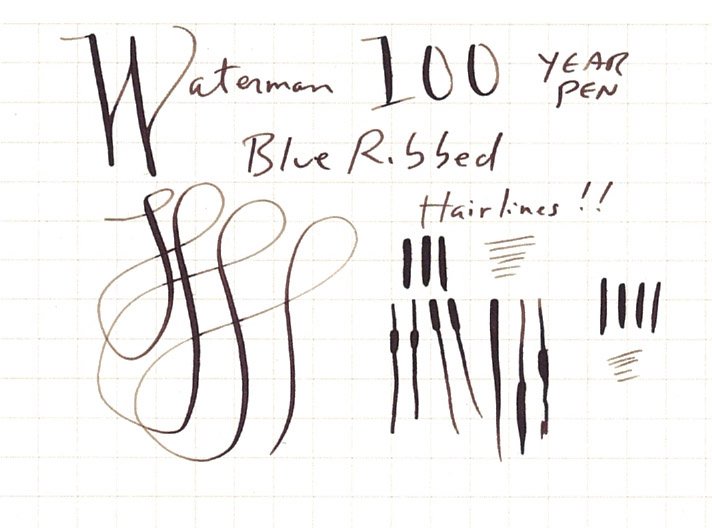 Waterman 100 YEAR PEN
Blue Ribbed
Hairlines!!